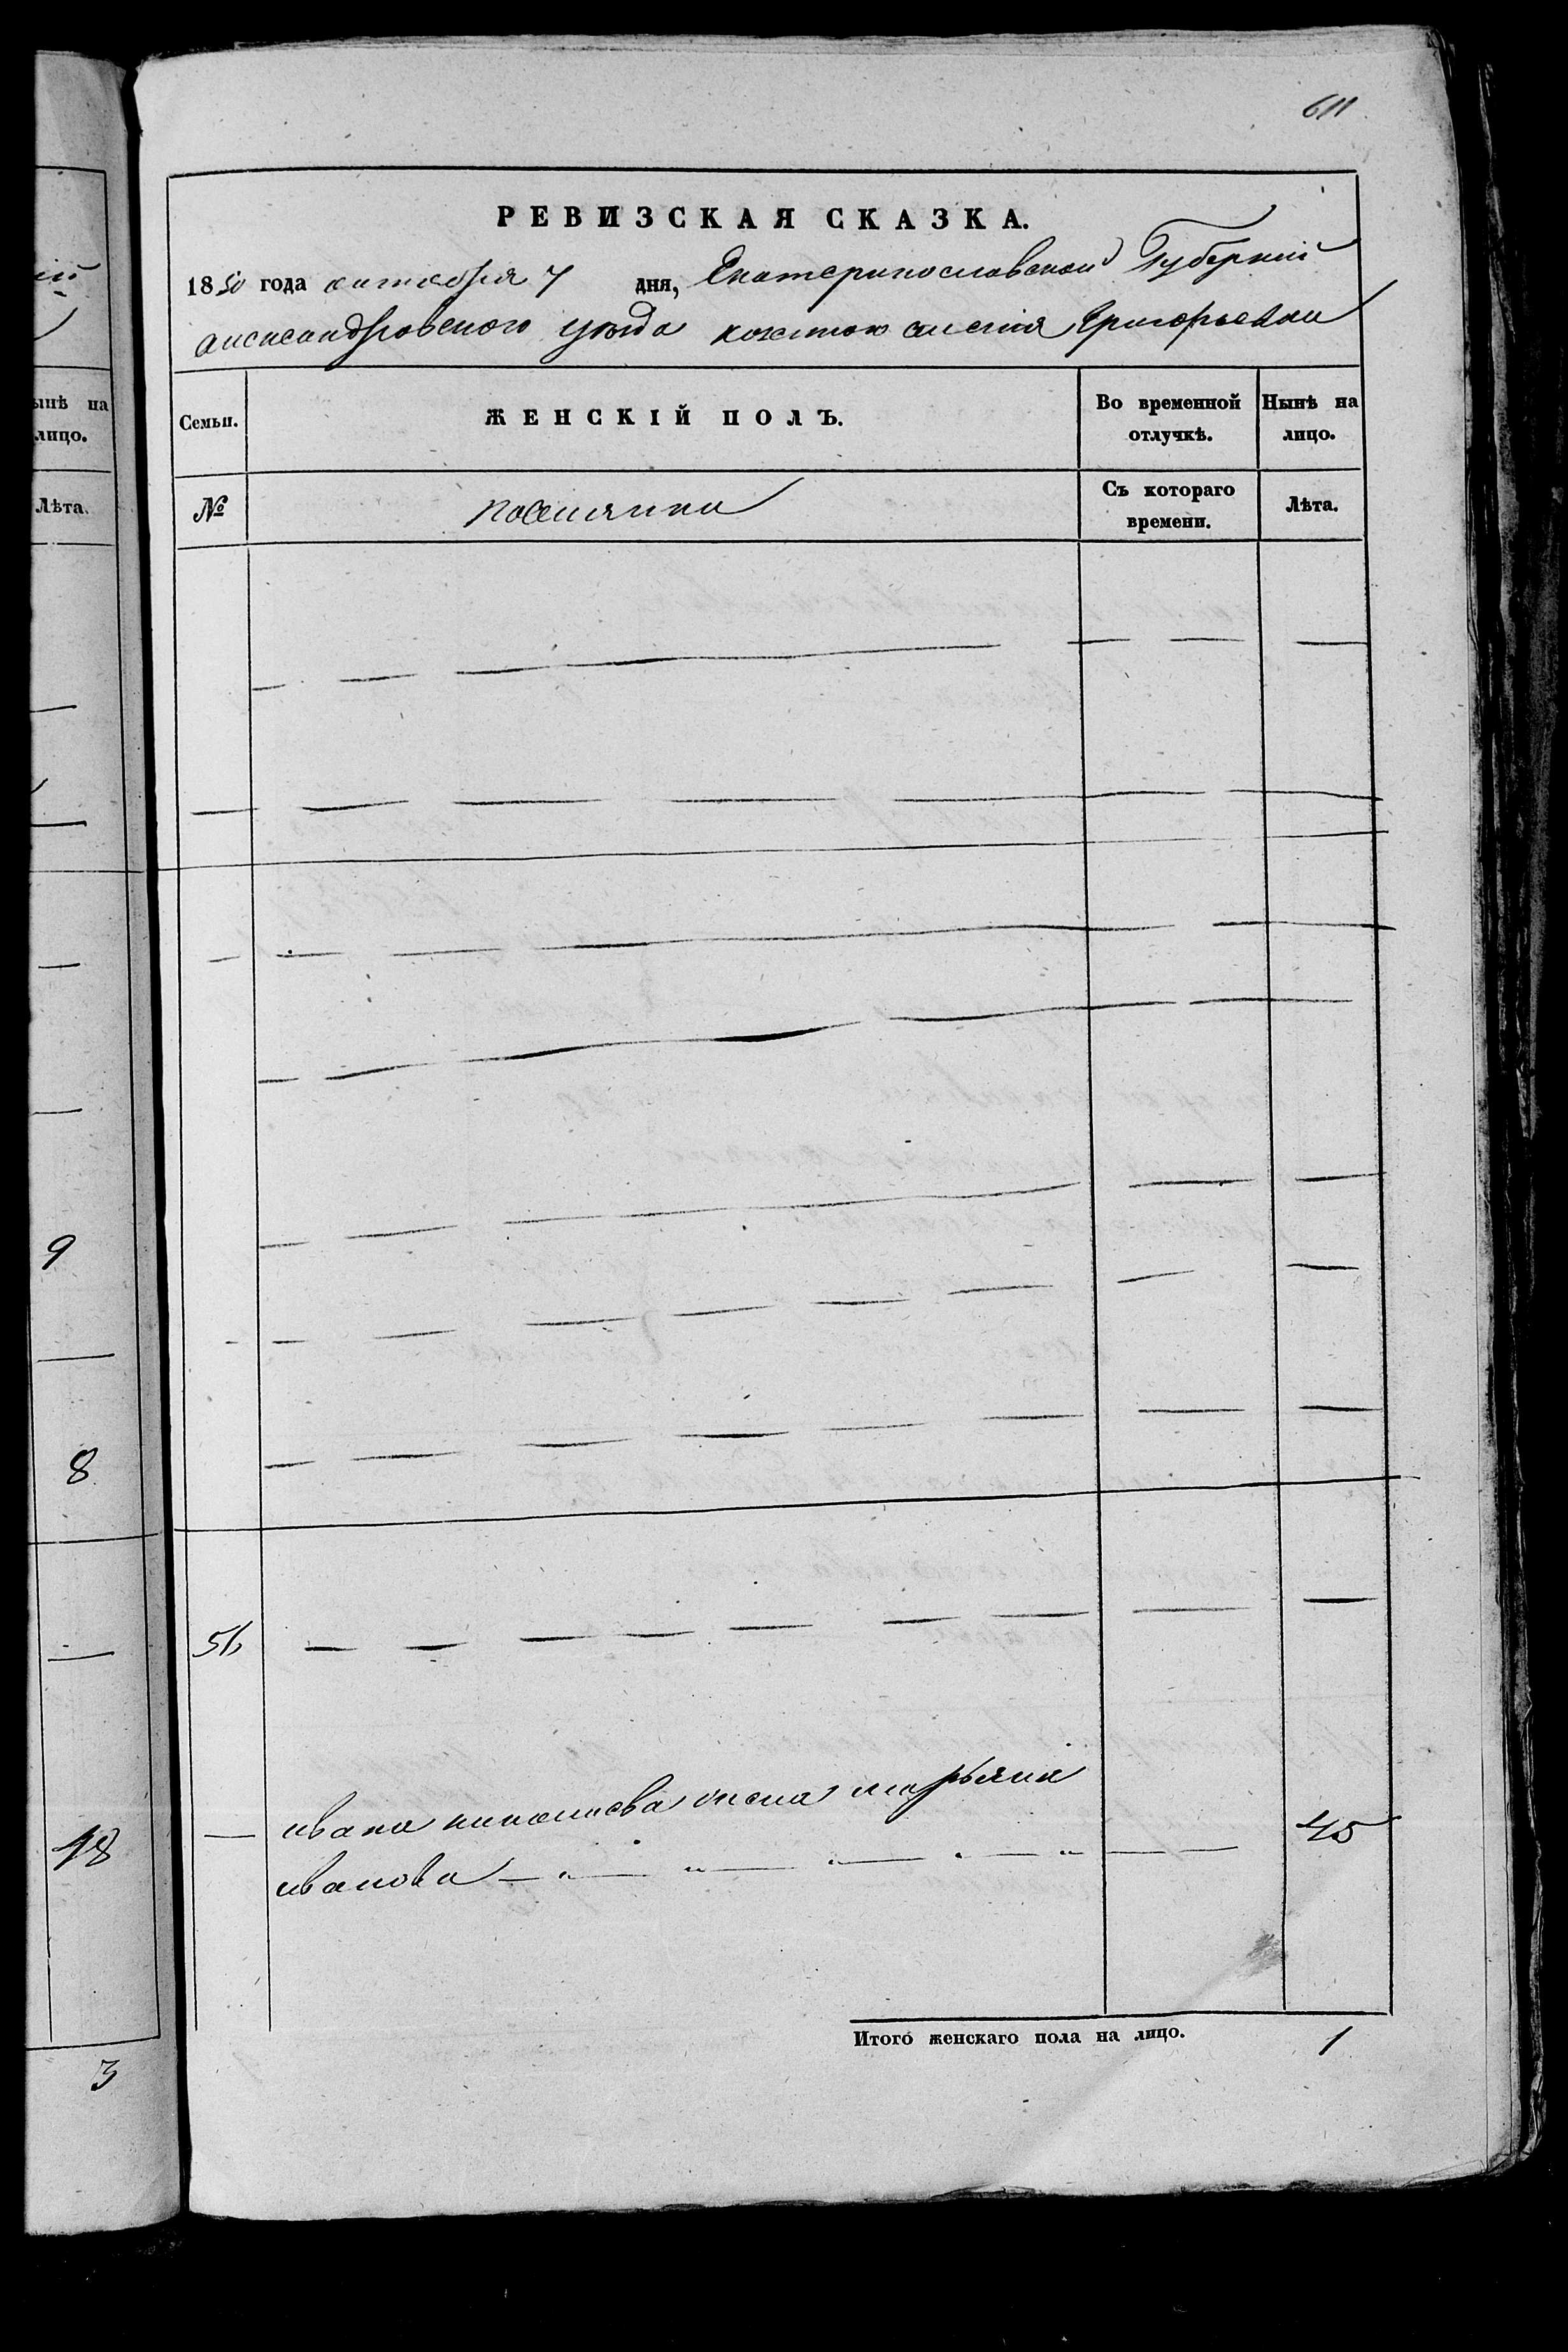 611
РЕВИЗСКАЯ СКАЗКА.
1850 года октября 7 дня, Екатеринославской Губерніи
александровского уезда Григорьевки
Семьи. ЖЕНСКІЙ ПОЛЪ. Во временной отлучкѣ. Нынѣ на лицо.
№ поселянки Съ котораго времени. Лѣта.
56
ивана николаева жена марьяна
иванова 45
Итого женскаго пола на лицо. 1
ынѣ на
лицо.
Лѣта.
9
8
18
3